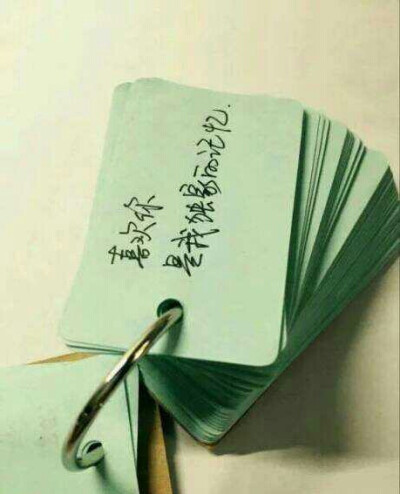 喜欢你
是我独家的记忆.